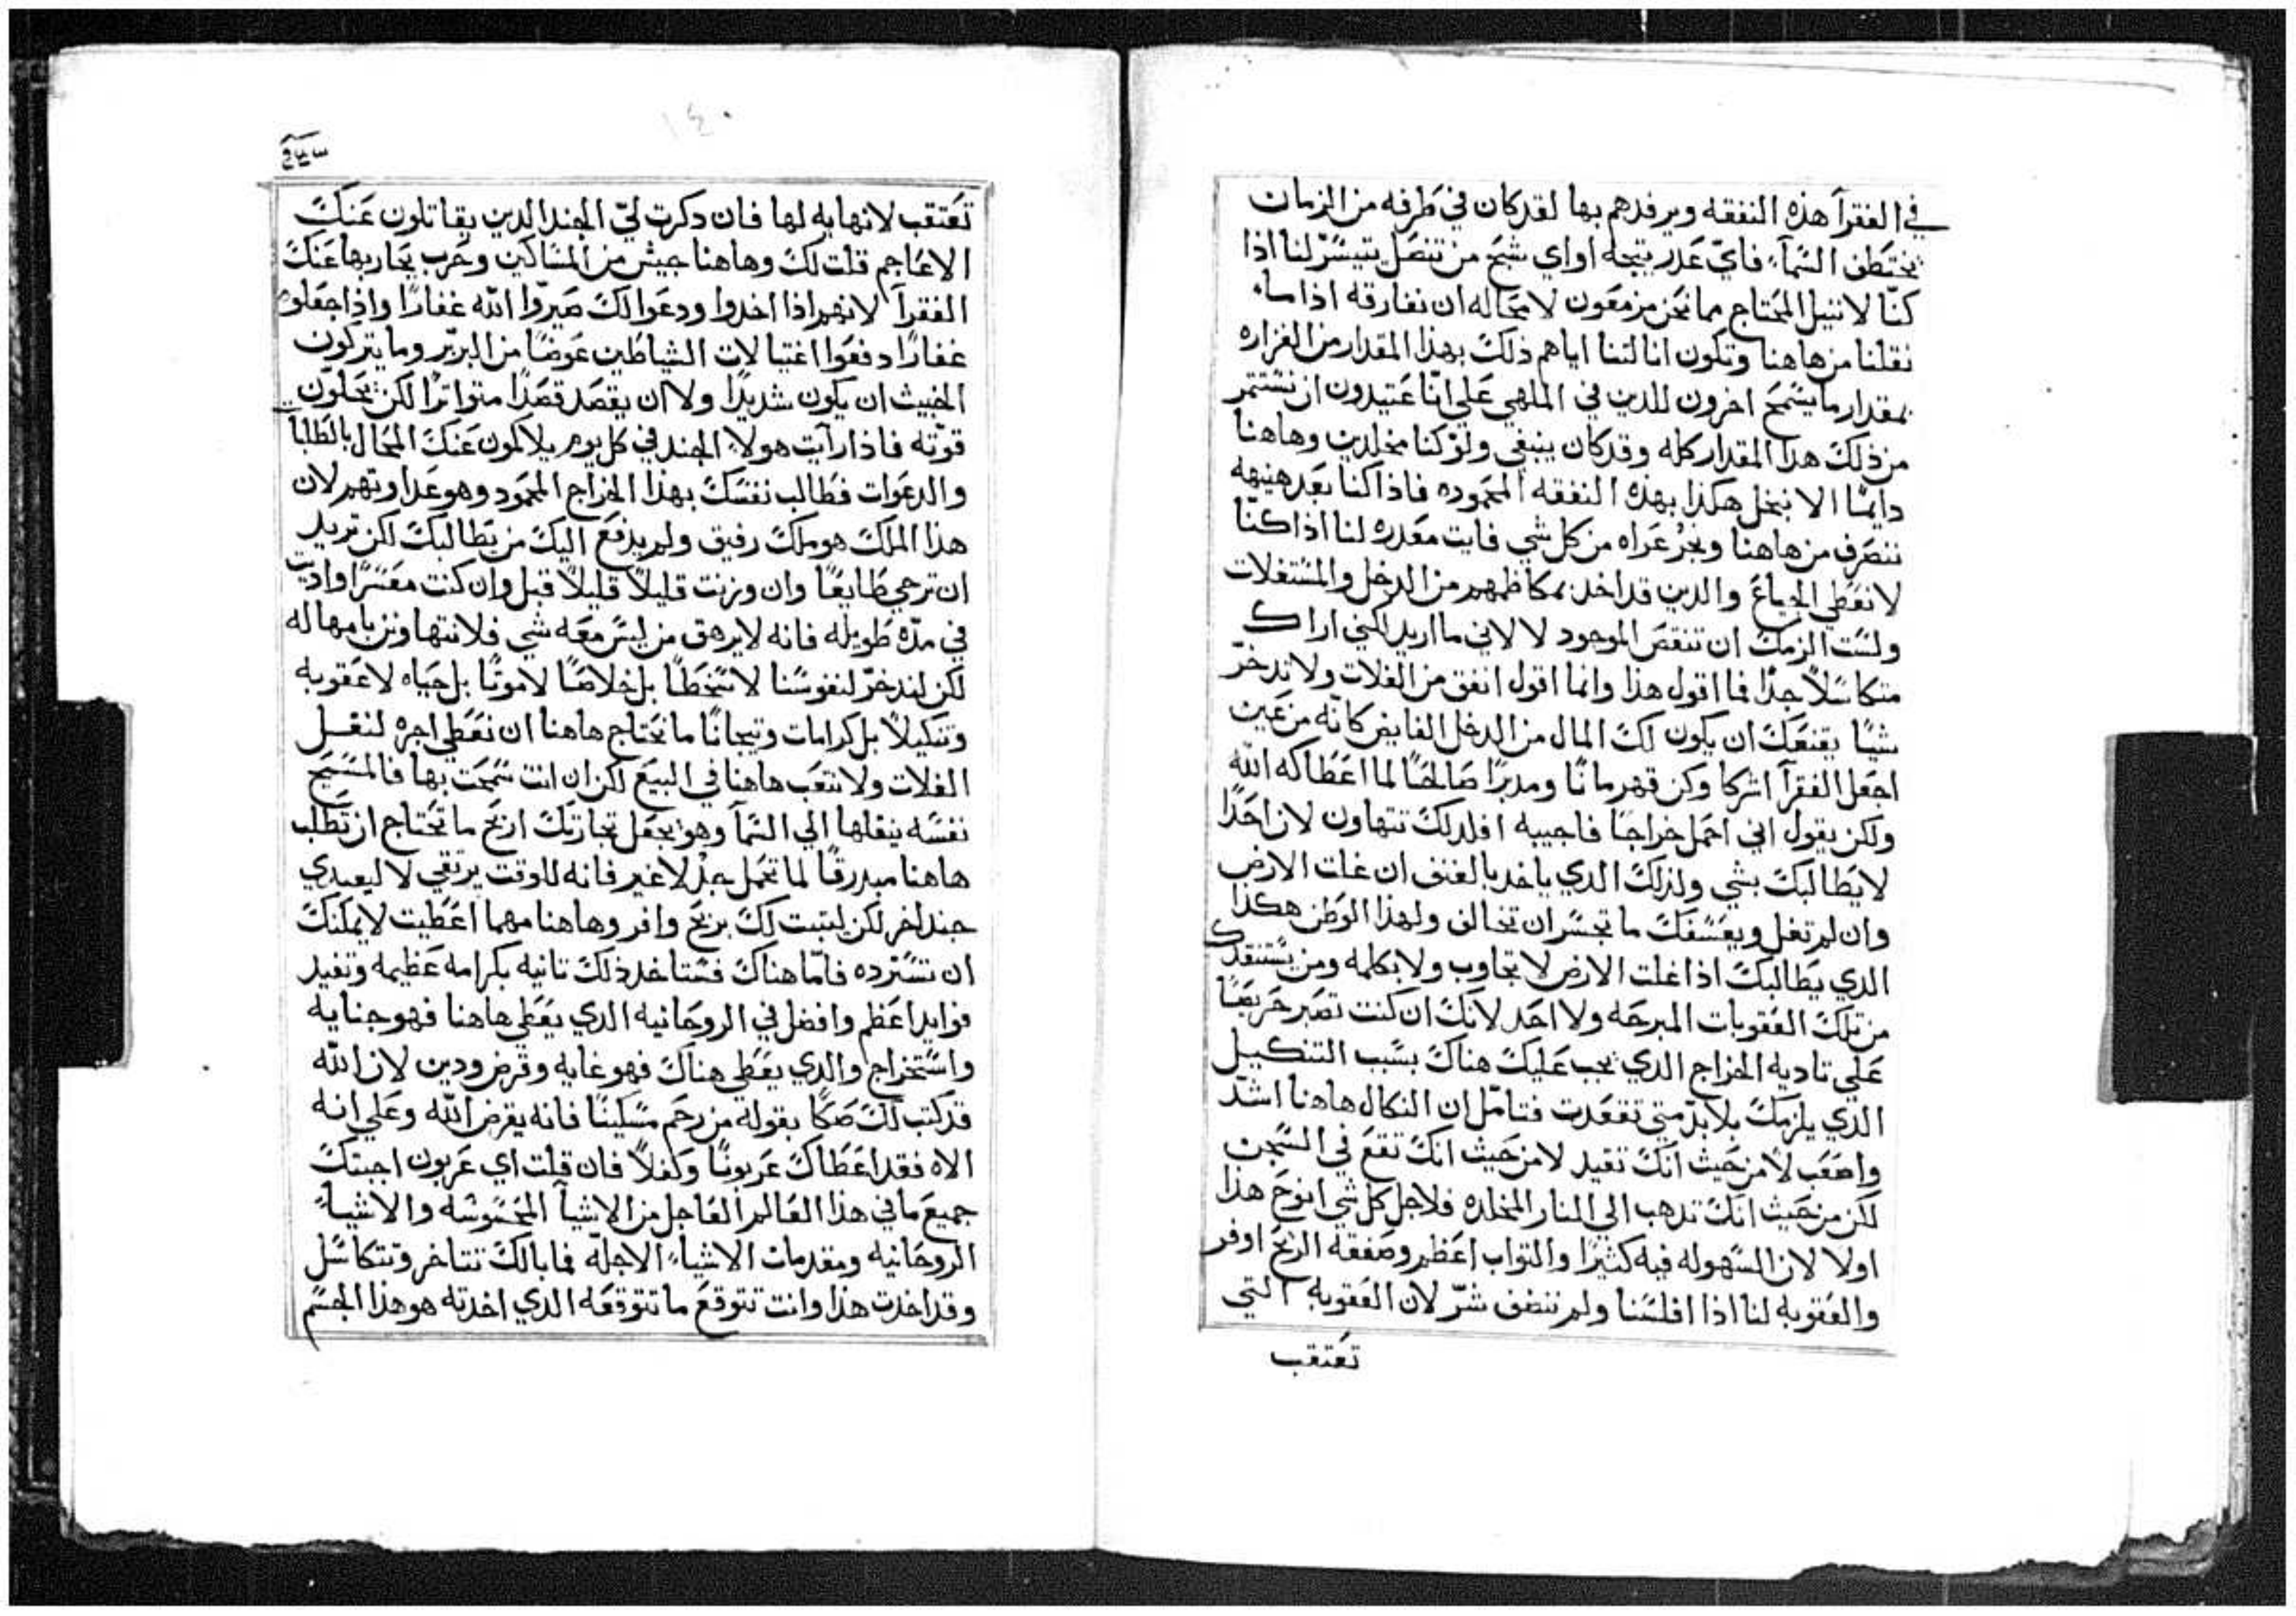 في الفقرآ هذه النفقه ويرفدهم بها لقد كان في طرفه من الزمان
يختطف السمآء فاي عدر يتجه او اي شبح من تنصل يتيسر لنا اذا
كنا لا ننيل المحتاج مما نحن مزمعون لا محاله ان نفارقه اذا ساء
نقلنا من هاهنا وتكون انالتنا اياهم ذلك بهذا المقدار من الغزاره
بمقدار ما يسمح اخرون للدين في الملهي علي انا عتيدون ان نستتمر
من ذلك هدا المقدار كله وقد كان ينبغي ولو كنا مخلدين وهاهنا
دايمًا الا نبخل هكذا بهذه النفقه المحموده فاذا كنا بعد هنيهه
ننصرف من هاهنا ونجر عراه من كل شي فايت معدره لنا اذا كنا
لا نعطي الجياع والدين قد اخد بمكاظمهم من الدخل والمستغلات
ولست الزمك ان تنقص الموجود لا لاني ما اريد لكني اراك
متكاسلاً جدًا فما اقول هذا وانما اقول انفق من الغلات ولا تدخر
شيًا يقنعك ان يكون لك المال من الدخل الفايض كانه من عين
اجعل الفقرآ اشركا وكن قهرمانًا ومدبرًا صالحًا لما اعطاكه الله
ولكن يقول اني احمل خراجًا فاجيبه افلدلك تتهاون لان احدًا
لا يطالبك بشي ولذلك الدي ياخد بالعنف ان غلت الارض
وان لم تغل ويعسفك ما تجسر ان تخالف ولهذا الوطن هكذا
الدي يطالبك اذا غلت الارض لا تجاوب ولا بكلمه ومن يستنقدك
من تلك العقوبات المبرحه ولا احد لانك ان كنت تصبر حريصًا
علي تاديه الخراج الدي يجب عليك هناك بسبب التنكيل
الدي يلزمك بلا بد متي تقعدت فتامل ان النكال هاهنا اشد
واصعب لا من حيث انك تقيد لا من حيث انك تقع في السجن
لكن من حيث انك تدهب الي النار المخلده فلاجل كل شي انوح هذا
اولا لان السهوله فيه كثيرًا والتواب اعظم وصفقه الربح اوفر
والعقوبه لنا اذا افلسنا ولم ننصف شر لان العقوبه التي
تعتقب
١٤٠
تعتقب لا نهايه لها فان دكرت لي الجند الدين يقاتلون عنك
الاعاجم قلت لك وهاهنا جيش من المساكين وحرب يحاربها عنك
الفقرآ لانهم اذا اخدوا ودعوا لك صيروا الله غفارًا واذا جعلوه
غفارًا دفعوا اغتيالات الشياطين عوضًا من البربر وما يتركون
الخبيث ان يكون شديدًا ولا ان يقصد قصدًا متواترًا لكن يحلون
قوته فاذا رآيت هولا الجند في كل يوم يلاكمون عنك المحال بالطلبات
والدعوات فطالب نفسك بهذا الخراج المحمود وهو غداوتهم لان
هذا الملك هو ملك رفيق ولم يدفع اليك من يطالبك لكن تريد
ان ترجي طايعًا وان وزنت قليلاً قليلاً قبل وان كنت معسرًا واديت
في مده طويله فانه لا يرهق من ليس معه شي فلا نتهاونن بامهاله
لكن لندخر لنفوسنا لا سخطًا بل خلاصًا لا موتًا بل حياه لا عقوبه
وتنكيلاً بل كرامات وتيجانًا ما نحتاج هاهنا ان نعطي اجره لنقل
الغلات ولا نتعب هاهنا في البيع لكن ان انت سمحت بها فالمسيح
نفسه ينقلها الي السمآ وهو يجعل تجارتك اربح ما تحتاج ان تطلب
هاهنا مبدرقًا لما تحمل لا غير فانه للوقت يرتقي لا ليغدي
جند اخر لكن ليتبت لك بربح وافر وهاهنا مهما اعطيت لا يمكنك
ان تسترده فاما هناك فستاخد ذلك تانيه بكرامه عظيمه وتفيد
فوايد اعظم وافضل في الروحانيه الدي يعطي هاهنا فهو جنايه
واستخراج والدي يعطي هناك فهو غايه وقرض ودين لان الله
قد كتب لك صكًا بقوله من رحم مسكينًا فانه يقرض الله وعلي انه
الاه فقد اعطاك عربونًا وكفلاً فان قلت اي عربون اجبتك
جميع ما في هذا العالم العاجل من الاشيآ المحسوسه والاشيآء
الروحانيه ومقدمات الاشيآء الاجله فما بالك تتاخر وتتكاسل
وقد اخدت هذا وانت تتوقع ما تتوقعه الدي اخدته هو هذا الجسم